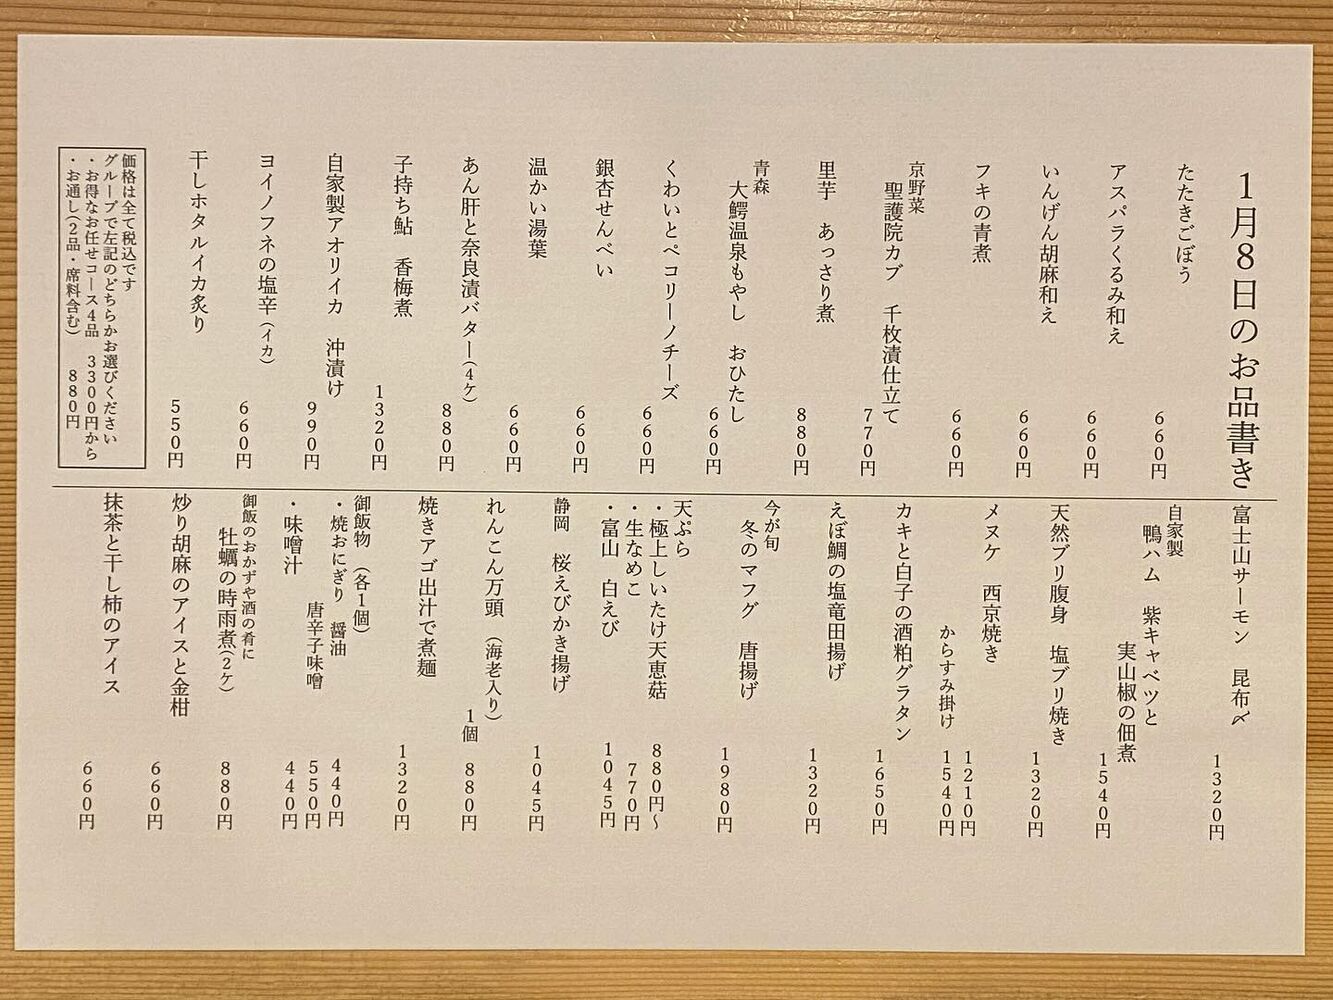 1月8日のお品書き
たたきごぼう 660円
アスパラくるみ和え 660円
いんげん胡麻和え 660円
フキの青煮 660円
京野菜
聖護院カブ 千枚漬仕立て 770円
里芋 あっさり煮 880円
青森
大鰐温泉もやし おひたし 660円
くわいとペコリーノチーズ 660円
銀杏せんべい 660円
温かい湯葉 660円
あん肝と奈良漬バター(4ケ) 880円
子持ち鮎 香梅煮 1320円
自家製アオリイカ 沖漬け 990円
ヨイノフネの塩辛(イカ) 660円
干しホタルイカ炙り 550円
価格は全て税込です
グループで左記のどちらかお選びください
・お得なお任せコース4品 3300円から
・お通し(2品・席料含む) 880円
富士山サーモン 昆布〆 1320円
自家製
鴨ハム 紫キャベツと
実山椒の佃煮 1540円
天然ブリ腹身 塩ブリ焼き 1320円
メヌケ 西京焼き 1210円
からすみ掛け 1540円
カキと白子の酒粕グラタン 1650円
えぼ鯛の塩竜田揚げ 1320円
今が旬
冬のマフグ 唐揚げ 1980円
天ぷら
・極上しいたけ天恵菇 880円〜
・生なめこ 770円
・富山 白えび 1045円
静岡 桜えびかき揚げ 1045円
れんこん万頭 (海老入り)
1個 880円
焼きアゴ出汁で煮麺 1320円
御飯物 (各1個)
・焼おにぎり 醤油 440円
唐辛子味噌 550円
・味噌汁 440円
御飯のおかずや酒の肴に
牡蠣の時雨煮(2ケ) 880円
炒り胡麻のアイスと金柑 660円
抹茶と干し柿のアイス 660円